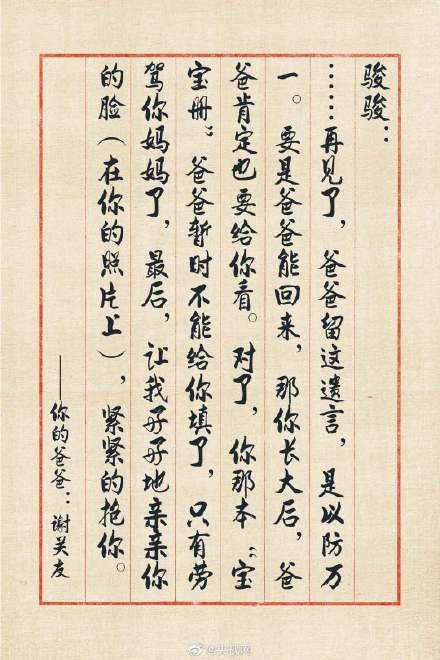 骏骏：
……再见了，爸爸留这遗言，是以防万
一。要是爸爸能回来，那你长大后，爸
爸肯定也要给你看。对了，你那本“宝
宝册”，爸爸暂时不能给你填了，只有劳
驾你妈妈了，最后，让我好好地亲亲你
的脸（在你的照片上），紧紧的抱你。
——你的爸爸：谢关友
@央视网